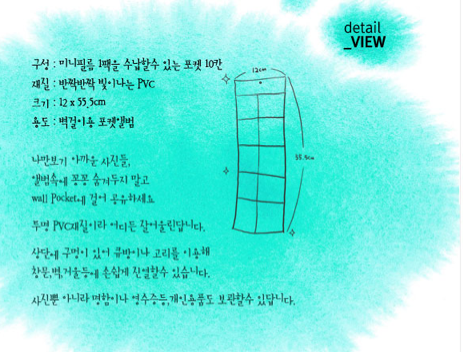 detail
_VIEW
구성 : 미니필름 1팩을 수납할수 있는 포켓 10칸
재질 : 반짝반짝 빛이나는 PVC
크기 : 12 x 55.5cm
용도 : 벽걸이용 포켓앨범
12cm
55.5cm
나만보기 아까운 사진들,
앨범속에 꽁꽁 숨겨두지 말고
wall Pocket에 걸어 공유하세요
투명 PVC재질이라 어디든 잘어울린답니다.
상단에 구멍이 있어 큐방이나 고리를 이용해
창문,벽,거울등에 손쉽게 진열할수 있습니다.
사진뿐 아니라 명함이나 영수증등,개인용품도 보관할수 있답니다.